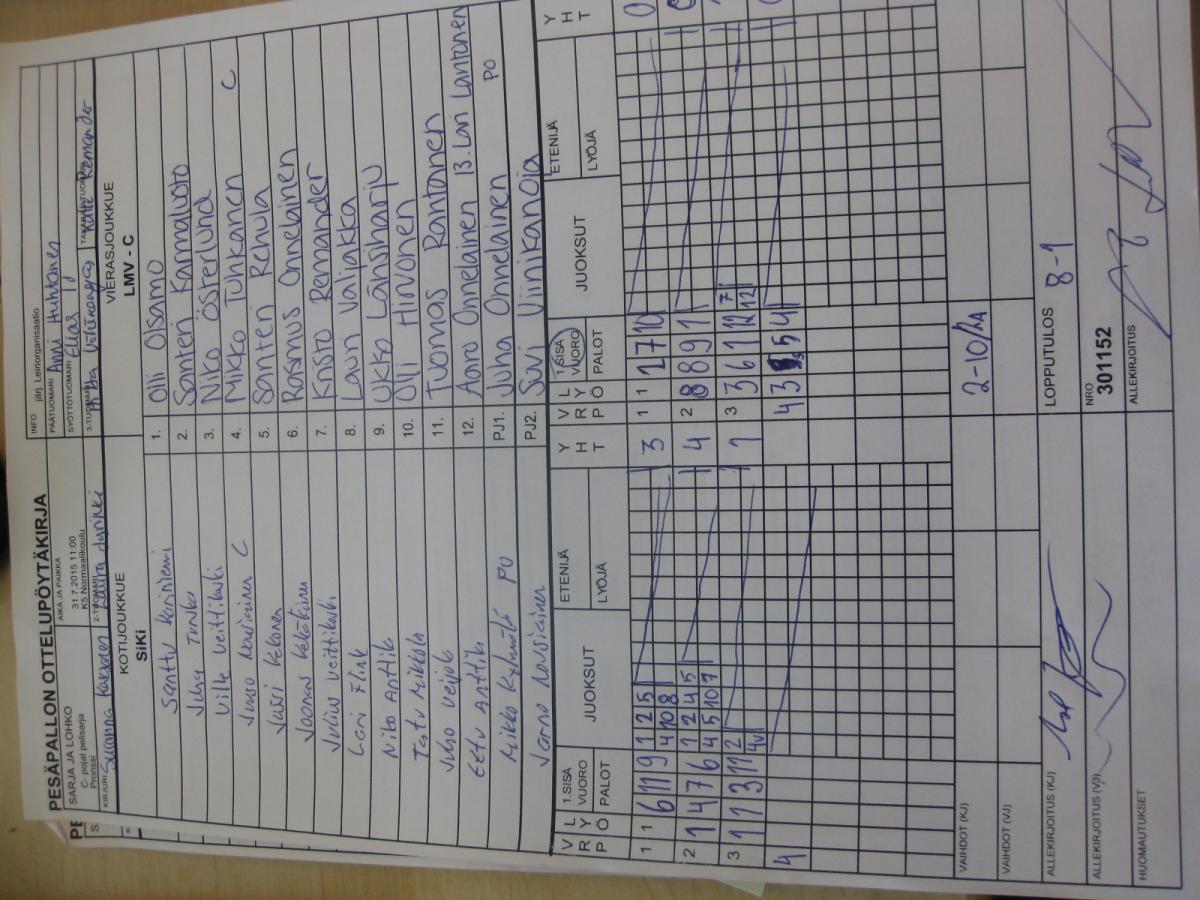 PESÄPALLON OTTELUPÖYTÄKIRJA
SARJA JA LOHKO
C- pojat pelisarja
Pronssi
AIKA JA PAIKKA
31.7.2015 11:00
K5 Normaalikoulu
INFO järj. Leiriorganisaatio
PÄÄTUOMARI Anni Huhtanen
SYÖTTÖTUOMARI Elias
KIRJURI Susanna
2-TUOMARI Laura
3-TUOMARI
TAKARAJATUOMARI Remander
KOTIJOUKKUE
SiKi
VIERASJOUKKUE
LMV - C
Santtu
1. Olli Olsamo
Juha Turku
2. Santeri Kamaluoto
Ville Veittikoski
3. Niko Österlund
Juuso Nousiainen C
4. Mikko Tuhkanen C
Jussi Kekonen
5. Santeri Rehula
Joonas
6. Rasmus Onnelainen
Julius Veittikoski
7. Kristo Remander
Lari Flink
8. Lauri Valjakka
Niko Anttila
9. Ukko Länsiharju
Testu Mikkola
10. Olli Hirvonen
Juho Veijola
11. Tuomas Rantanen
Eetu Anttila
12. Aaro Onnelainen 13. Lari Lantonen
Mikko Kylmälä PO
PJ1. Juha Onnelainen PO
Jarno Nousiainen
PJ2. Suvi Viinikanoja
V R P
L Y Ö
1.SISÄ VUORO
PALOT
JUOKSUT
ETENIJÄ
LYÖJÄ
Y H T
V R P
L Y Ö
1.SISÄ VUORO
PALOT
JUOKSUT
ETENIJÄ
LYÖJÄ
Y H T
1 1 6 11 9 1 2 5 3
4 10 8
1 1 1 2 7 10 0
2 1 4 7 6 1 2 4 5 4
4 5 10 7
2 8 8 9 1 0
3 1 1 3 11 2 1
3 3 6 11 12 7 1
12
4
4 3 5 4
VAIHDOT (KJ)
VAIHDOT (VJ)
2-10/
ALLEKIRJOITUS (KJ)
LOPPUTULOS 8-1
ALLEKIRJOITUS (VJ)
NRO
301152
HUOMAUTUKSET
ALLEKIRJOITUS